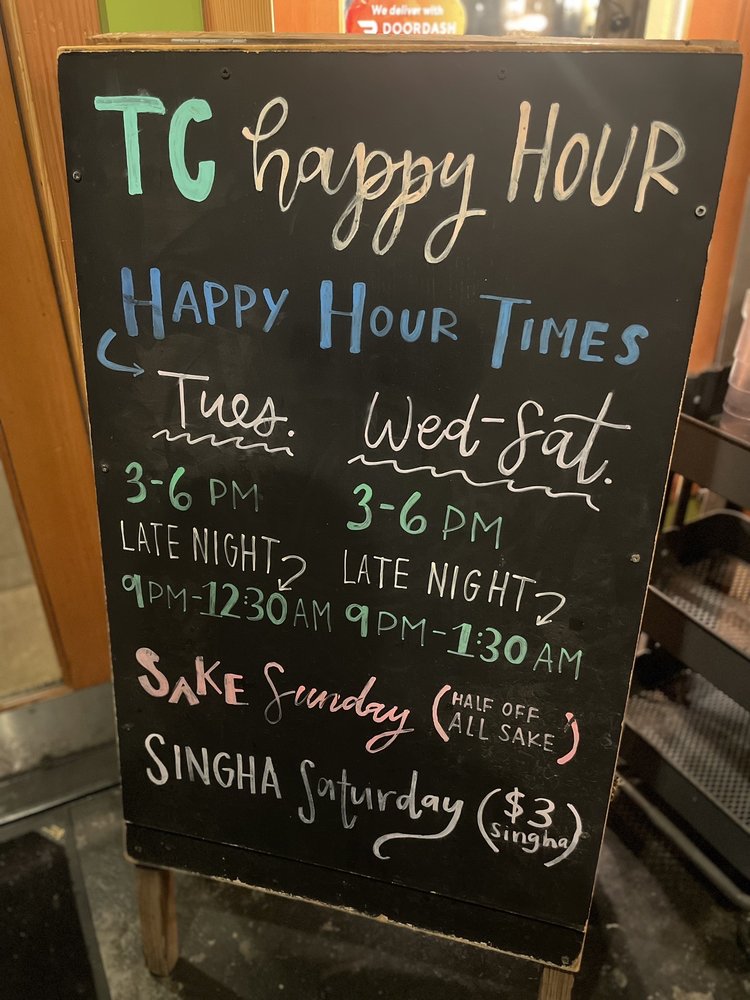 We deliver with
DOORDASH
TC happy HOUR
HAPPY HOUR TIMES
Tues.
3-6 PM
LATE NIGHT
9PM-12:30AM
Wed-Sat.
3-6 PM
LATE NIGHT
9PM-1:30AM
SAKE Sunday (HALF OFF
ALL SAKE)
SINGHA Saturday ($3
singha)